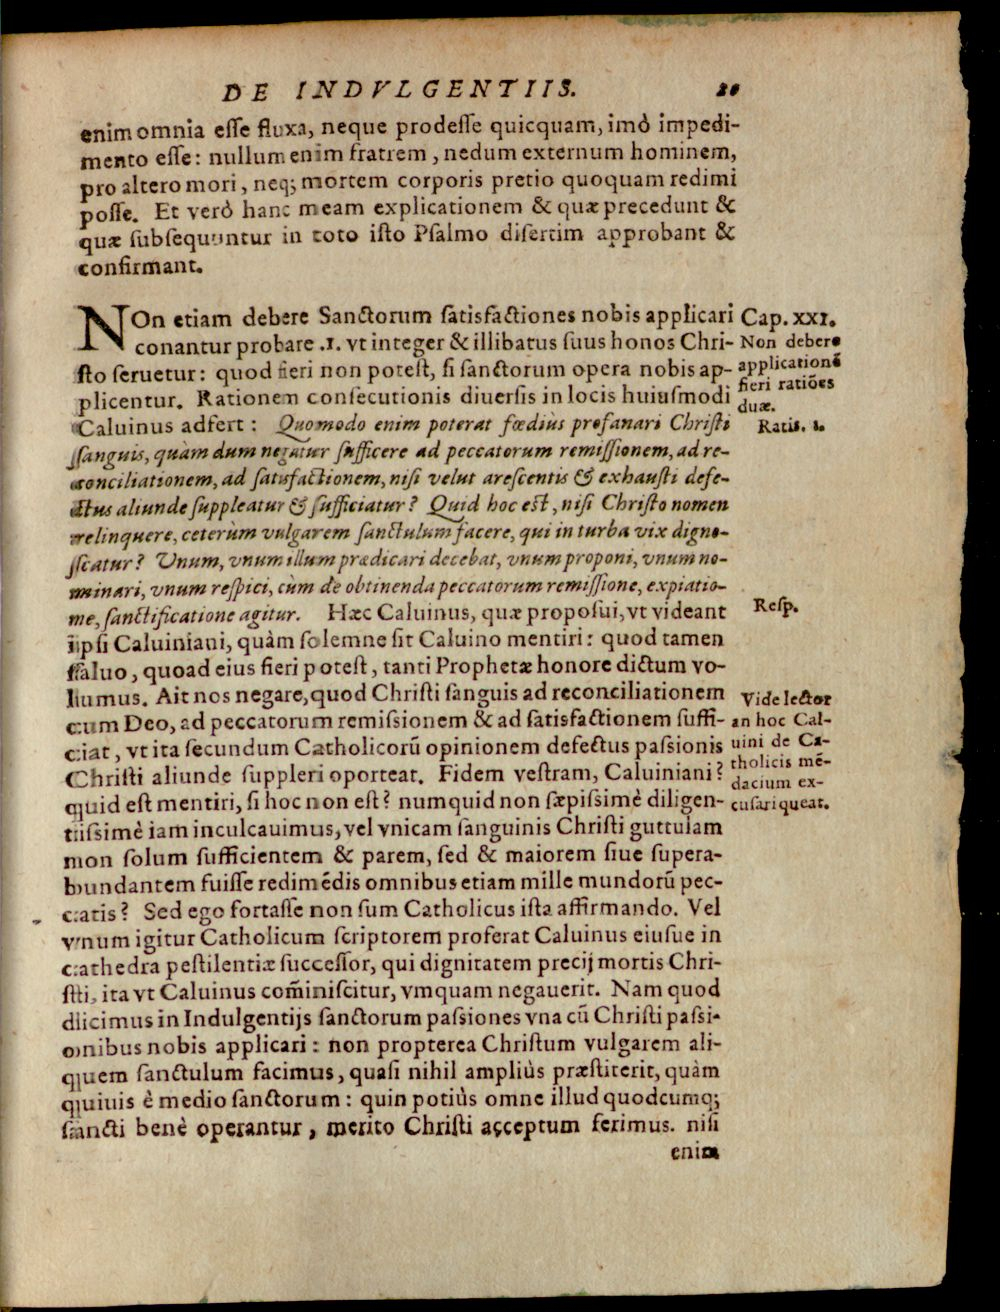 DE INDVLGENTIIS. 20
enim omnia esse fluxa, neque prodesse quicquam, imò impedi-
mento esse: nullum enim fratrem, nedum externum hominem,
pro altero mori, neq; mortem corporis pretio quoquam redimi
posse. Et verò hanc meam explicationem & quæ precedunt &
quæ subsequuntur in toto isto Psalmo disertim approbant &
confirmant.
NOn etiam debere Sanctorum satisfactiones nobis applicari
conantur probare .1. vt integer & illibatus suus honos Chri-
sto seruetur: quod fieri non potest, si sanctorum opera nobis ap-
plicentur. Rationem consecutionis diuersis in locis huiusmodi
Caluinus adfert: Quomodo enim poterat fœdiùs profanari Christi
sanguis, quàm dum negatur sufficere ad peccatorum remissionem, ad re-
conciliationem, ad satisfactionem, nisi velut arescentis & exhausti defe-
ctus aliunde suppleatur & sufficiatur? Quid hoc est, nisi Christo nomen
relinquere, ceterùm vulgarem sanctulum facere, qui in turba vix digno-
scatur? Unum, vnum illum prædicari decebat, vnum proponi, vnum no-
minari, vnum respici, cùm de obtinenda peccatorum remissione, expiatio-
me, sanctificatione agitur. Hæc Caluinus, quæ proposui, vt videant
ipsi Caluiniani, quàm solemne sit Caluino mentiri: quod tamen
saluo, quoad eius fieri potest, tanti Prophetæ honore dictum vo-
lumus. Ait nos negare, quod Christi sanguis ad reconciliationem
cum Deo, ad peccatorum remissionem & ad satisfactionem suffi-
ciat, vt ita secundum Catholicorū opinionem defectus passionis
Christi aliunde suppleri oporteat. Fidem vestram, Caluiniani?
quid est mentiri, si hoc non est? numquid non sæpissimè diligen-
tissimè iam inculcauimus, vel vnicam sanguinis Christi guttulam
non solum sufficientem & parem, sed & maiorem siue supera-
bundantem fuisse redimēdis omnibus etiam mille mundorū pec-
catis? Sed ego fortasse non sum Catholicus ista affirmando. Vel
vnum igitur Catholicum scriptorem proferat Caluinus eiusue in
cathedra pestilentiæ successor, qui dignitatem precij mortis Chri-
sti, ita vt Caluinus com̄iniscitur, vmquam negauerit. Nam quod
dicimus in Indulgentijs sanctorum passiones vna cū Christi passi-
onibus nobis applicari: non propterea Christum vulgarem ali-
quem sanctulum facimus, quasi nihil ampliùs præstiterit, quàm
quiuis è medio sanctorum: quin potiùs omne illud quodcumq;
sancti benè operantur, merito Christi acceptum ferimus. nisi
enim
Cap. XXI.
Non debere
applicationē
fieri ratiōes
duæ.
Ratio. 1.
Resp.
Vide lector
an hoc Cal-
uini de Ca-
tholicis mē-
dacium ex-
cusari queat.